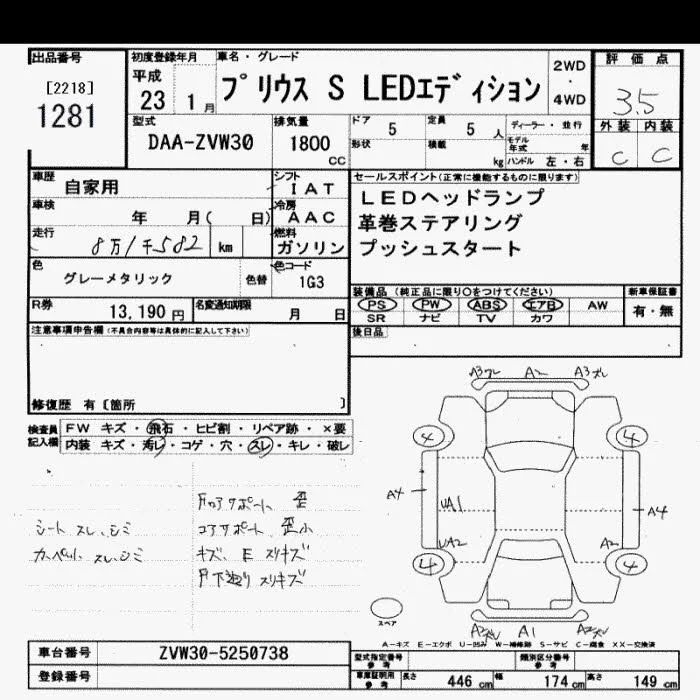 出品番号
[2218]
1281
初度登録年月
平成
23 1月
車名・グレード
プリウス S LEDエディション
2WD
・
4WD
評価点
3.5
外装 内装
C C
型式
DAA-ZVW30
排気量
1800
CC
ドア 5 定員 5 人
形状 積載 kg
ディーラー・並行
モデル年式 年
ハンドル 左・右
車歴 自家用
シフト
IAT
車検 年 月( 日)
冷房
AAC
走行 8万1千582 km
燃料
ガソリン
色 グレーメタリック
色替
色コード
1G3
R券 13,190円
名変通知期限 月 日
セールスポイント(正常に機能するものに限ります)
LEDヘッドランプ
革巻ステアリング
プッシュスタート
装備品 (純正品に限り○をつけてください)
PS PW ABS エアB AW
SR ナビ TV カワ
新車保証書
有・無
後日品
注意事項申告欄(不具合内容等は具体的に記入して下さい)
修復歴 有〔箇所 〕
検査員記入欄
FW キズ・飛石・ヒビ割・リペア跡・×要
内装 キズ・汚レ・コゲ・穴・スレ・キレ・破レ
シート スレ、シミ
カーペット スレ、シミ
コアサポート 歪小
キズ、E スリキズ
A3ズレ A2 A3ズレ
4 4
A4 UA1 A4
UA2 A2
4 4
A1
スペア
A-キズ E-エクボ U-凹み W-補修跡 S-サビ C-腐食 XX-交換済
車台番号 ZVW30-5250738
登録番号
型式指定番号
参考
類別区分番号
参考
車庫証明用
参考
長さ 446 cm 幅 174 cm 高さ 149 cm